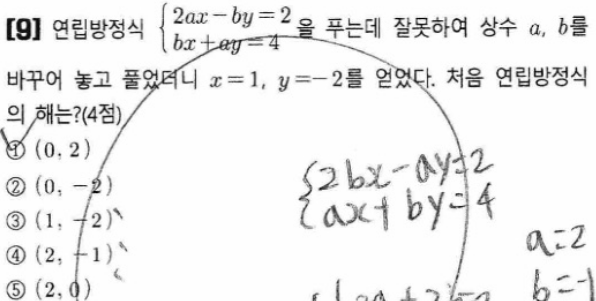 [9] 연립방정식 { 2ax - by = 2
bx + ay = 4 을 푸는데 잘못하여 상수 a, b를
바꾸어 놓고 풀었더니 x = 1, y = -2를 얻었다. 처음 연립방정식
의 해는?(4점)
① (0, 2)
② (0, -2)
③ (1, -2)
④ (2, -1)
⑤ (2, 0)
{ 2bx - ay = 2
ax + by = 4
a = 2
b = -1